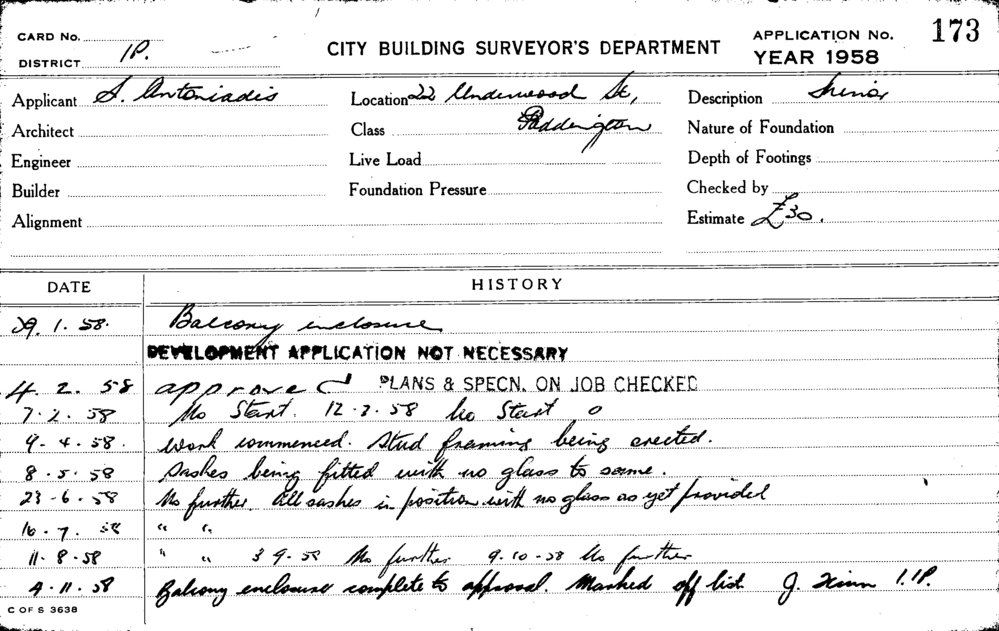 CARD No.
DISTRICT 1P.
CITY BUILDING SURVEYOR'S DEPARTMENT
APPLICATION No. 173
YEAR 1958
Applicant S. Antoniadis
Location 22 Underwood St,
Description
Architect
Class Paddington
Nature of Foundation
Engineer
Live Load
Depth of Footings
Builder
Foundation Pressure
Checked by
Alignment
Estimate £30.
DATE HISTORY
29. 1. 58. Balcony enclosure
DEVELOPMENT APPLICATION NOT NECESSARY
4. 2. 58 approved PLANS & SPECN. ON JOB CHECKED
7. 2. 58 No Start. 12-3-58 No Start
9. 4. 58. Work commenced. Stud framing being erected.
8. 5. 58 Sashes being fitted with no glass to same.
23-6-58 No further. All sashes in position with no glass as yet provided
16-7. 58 " "
11-8-58 " " 3 9-58 No further 9-10-58 No further
4-11-58 Balcony enclosure complete to approval. Marked off list J. 1.1P.
C OF S 3638